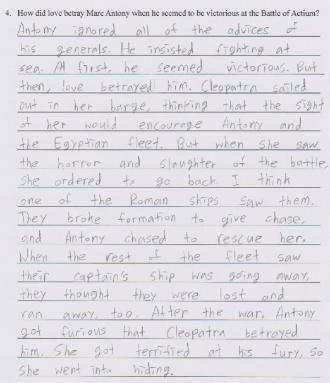 4. How did love betray Marc Antony when he seemed to be victorious at the Battle of Actium?
Antony ignored all of the advices of
his generals. He insisted fighting at
sea. At first, he seemed victorious. But
then, love betrayed him. Cleopatra sailed
out in her barge, thinking that the sight
of her would encourage Antony and
the Egyptian fleet. But when she saw
the horror and slaughter of the battle,
she ordered to go back. I think
one of the Roman ships saw them.
They broke formation to give chase,
and Antony chased to rescue her.
When the rest of the fleet saw
their captain's ship was going away,
they thought they were lost and
ran away, too. After the war, Antony
got furious that Cleopatra betrayed
him. She got terrified at his fury, so
she went into hiding.